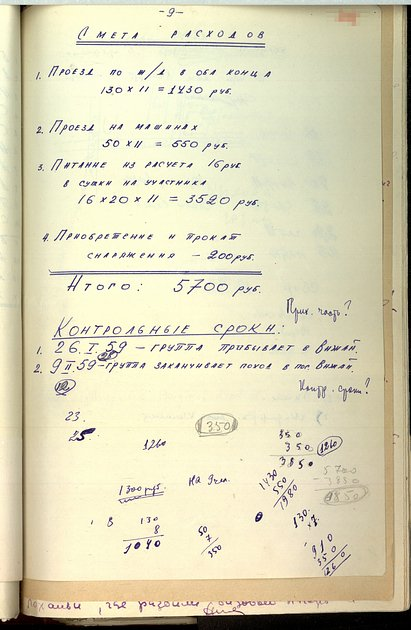 -9-
Смета расходов
1. Проезд по ж/д в оба конца
130 х 11 = 1430 руб.
2. Проезд на машинах
50 х 11 = 550 руб.
3. Питание из расчета 16 руб
в сутки на участника
16 х 20 х 11 = 3520 руб.
4. Приобретение и прокат
снаряжения - 200 руб.
Итого: 5700 руб.
Прих. часть?
Контрольные сроки:
1. 26.I.59 - группа прибывает в Вижай.
2. 9 II.59 - группа заканчивает поход в пос Вижай.
Контр. сроки?
23.
25
1260
350
350
350
1260
3850
5700
- 3850
1850
1300 руб.
на 9 чел.
1430
550
1980
В 130
8
1040
50
7
350
130
х 7
910
350
1260